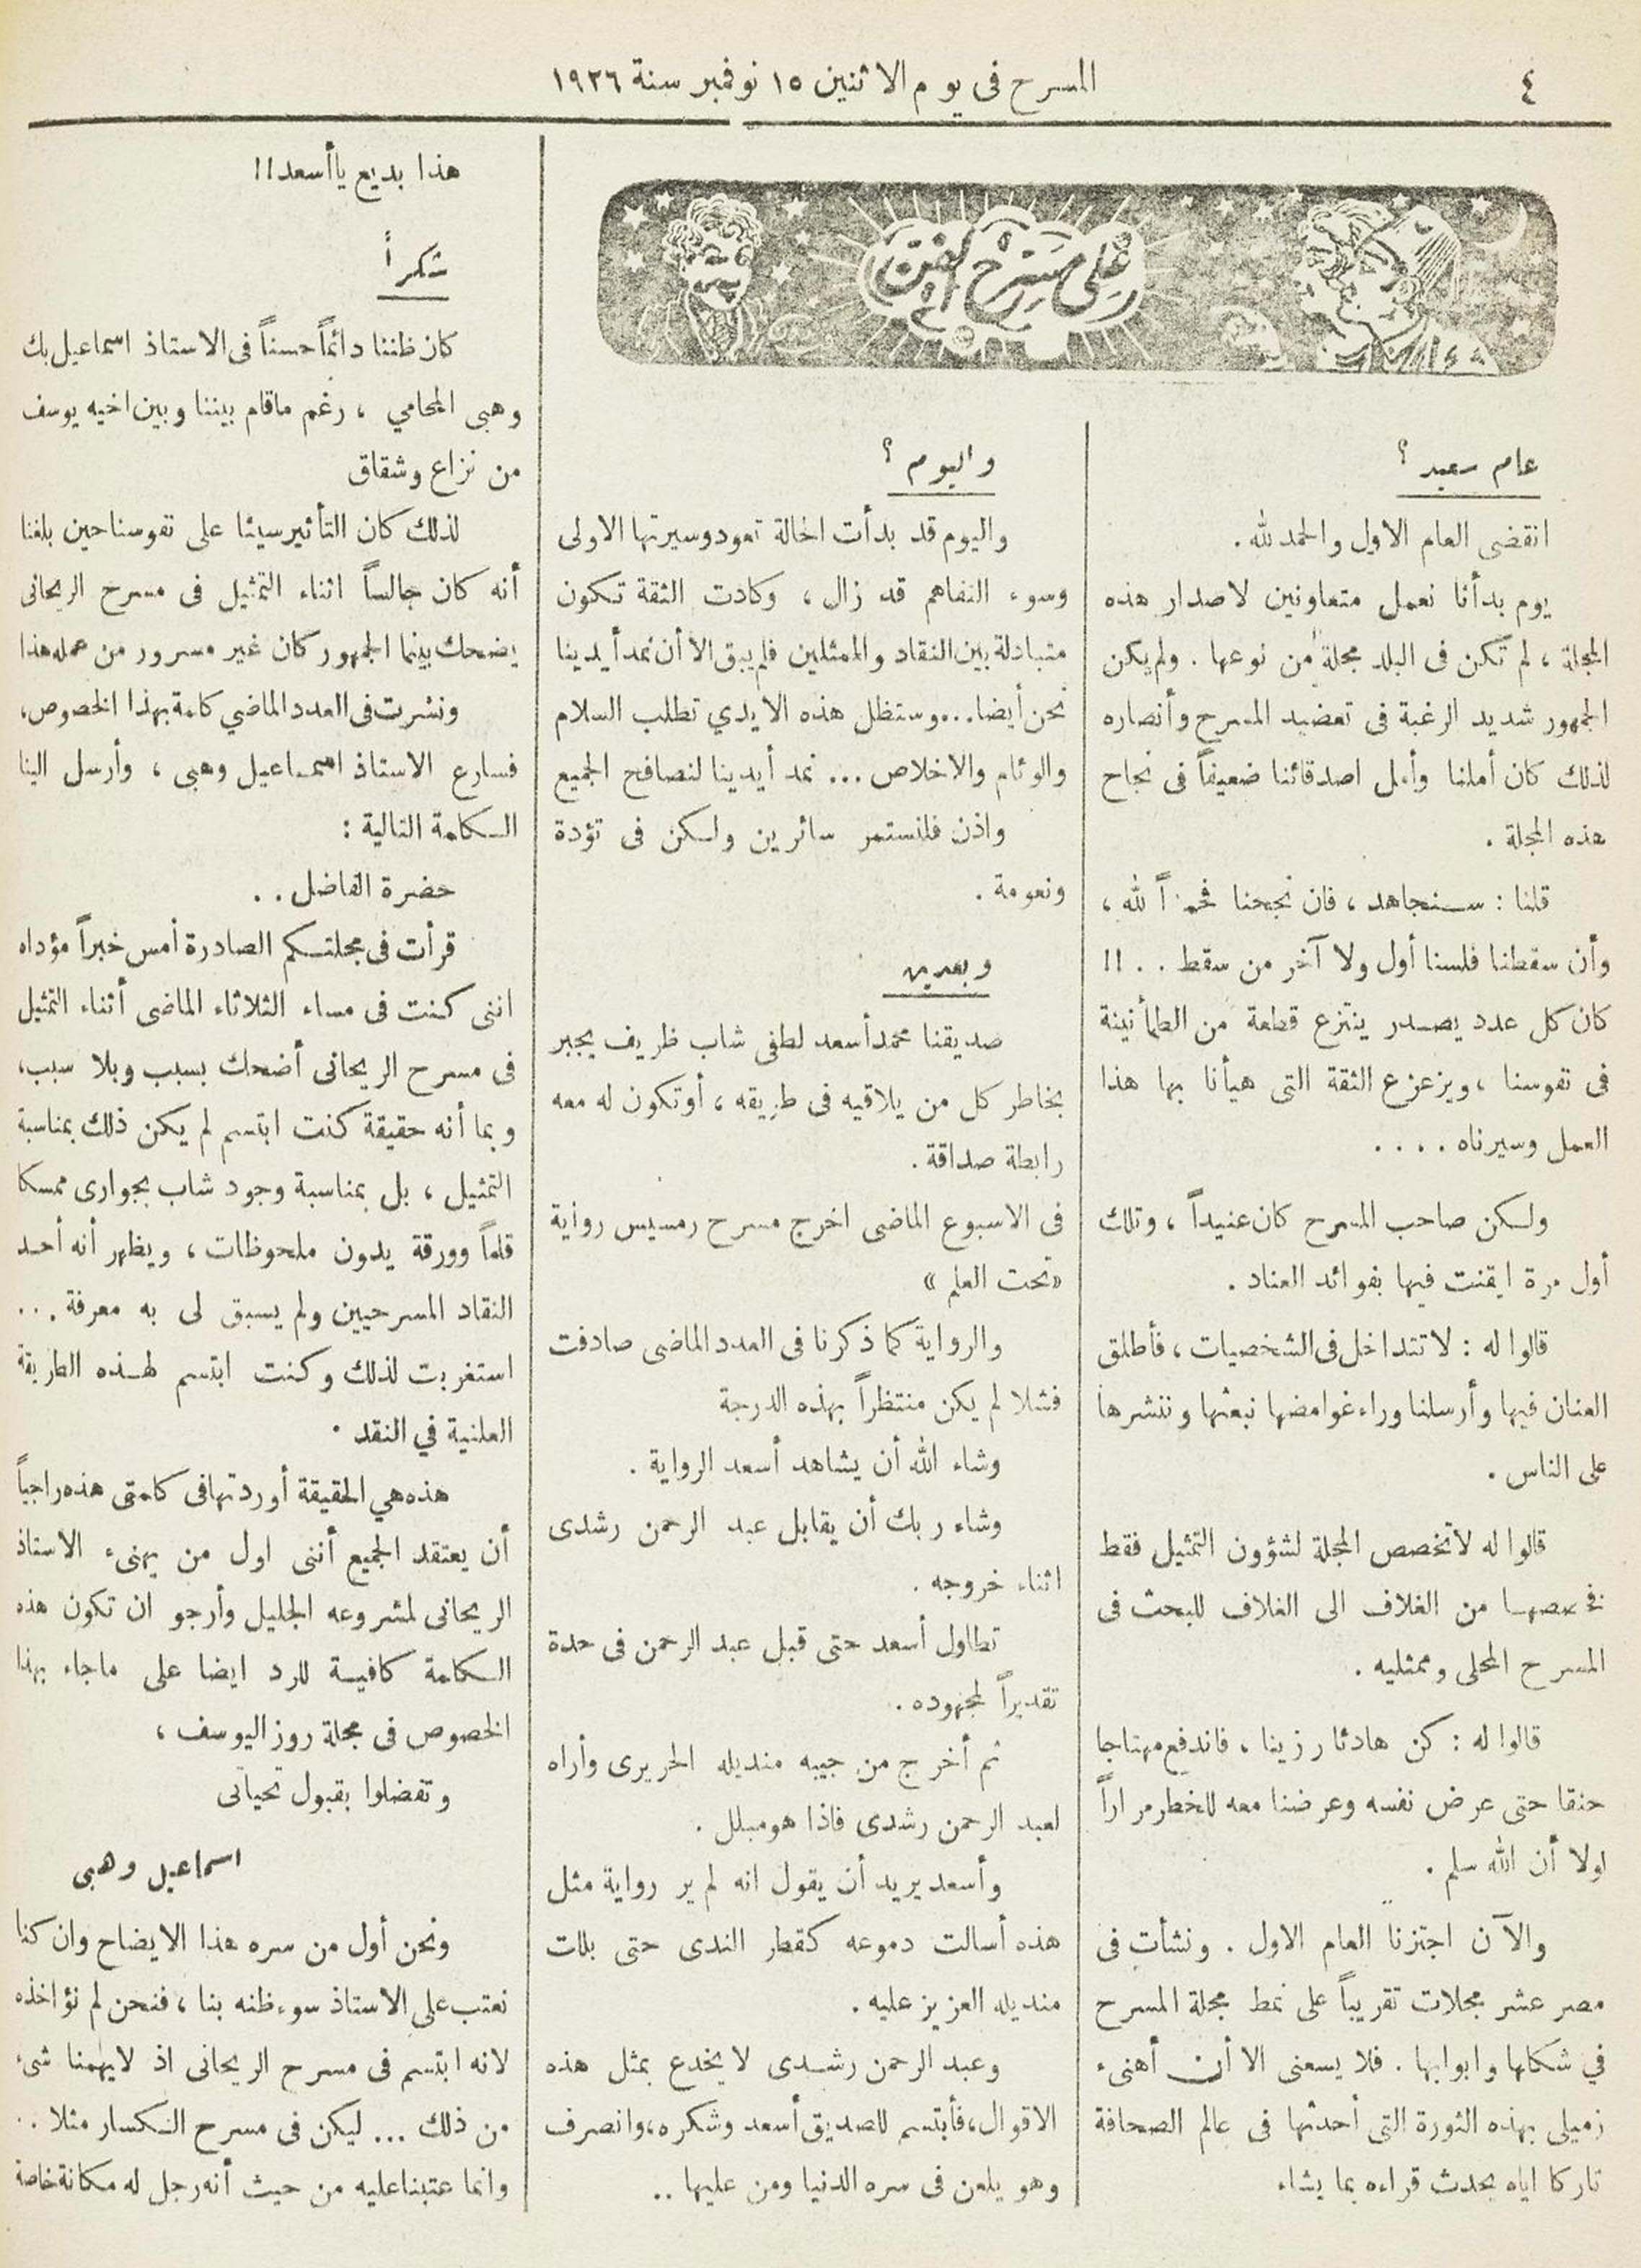 ٤
المسرح فى يوم الاثنين ١٥ نوفمبر سنة ١٩٢٦
على مسرح الفن
عام سعيد ؟
انقضى العام الاول والحمد لله .
يوم بدأنا نعمل متعاونين لاصدار هذه
المجلة ، لم تكن فى البلد مجلة من نوعها . ولم يكن
الجمهور شديد الرغبة فى تعضيد المسرح وأنصاره
لذلك كان أملنا وأمل اصدقائنا ضعيفاً فى نجاح
هذه المجلة .
قلنا : سنجاهد ، فان نجحنا فحمداً لله ،
وأن سقطنا فلسنا أول ولا آخر من سقط . . !!
كان كل عدد يصدر ينتزع قطعة من الطمأنينة
فى نفوسنا ، ويزعزع الثقة التى هيأنا بها هذا
العمل وسيرناه . . . .
ولكن صاحب المسرح كان عنيداً ، وتلك
أول مرة ايقنت فيها بفوائد العناد .
قالوا له : لا تتداخل فى الشخصيات ، فأطلق
العنان فيها وأرسلنا وراء غوامضها نبعثها وننشرها
على الناس .
قالوا له لا تخصص المجلة لشؤون التمثيل فقط
فخصصها من الغلاف الى الغلاف للبحث فى
المسرح المحلى وممثليه .
قالوا له : كن هادئا رزينا ، فاندفع مهتاجا
حنقا حتى عرض نفسه وعرضنا معه للخطر مراراً
لولا أن الله سلم .
والآن اجتزنا العام الاول . ونشأت فى
مصر عشر مجلات تقريباً على نمط مجلة المسرح
في شكلها وابوابها . فلا يسعنى الا أن أهنىء
زميلى بهذه الثورة التى أحدثها فى عالم الصحافة
تاركا اياه يحدث قراءه بما يشاء
واليوم ؟
واليوم قد بدأت الحالة تعود وسيرتها الاولى
وسوء التفاهم قد زال ، وكادت الثقة تكون
متبادلة بين النقاد والممثلين فلم يبق الا أن نمد أيدينا
نحن أيضا... وستظل هذه الايدي تطلب السلام
والوئام والاخلاص ... نمد أيدينا لنصافح الجميع
واذن فلنستمر سائرين ولكن فى تؤدة
ونعومة .
وبعدين
صديقنا محمد أسعد لطفى شاب ظريف يجبر
بخاطر كل من يلاقيه فى طريقه ، أو تكون له معه
رابطة صداقة .
فى الاسبوع الماضى اخرج مسرح رمسيس رواية
«تحت العلم»
والرواية كما ذكرنا فى العدد الماضى صادفت
فشلا لم يكن منتظراً بهذه الدرجة
وشاء الله أن يشاهد أسعد الرواية .
وشاء ربك أن يقابل عبد الرحمن رشدى
اثناء خروجه .
تطاول أسعد حتى قبل عبد الرحمن فى حدة
تقديراً لمجهوده .
ثم أخرج من جيبه منديله الحريرى وأراه
لعبد الرحمن رشدى فاذا هو مبلل .
وأسعد يريد أن يقول انه لم ير رواية مثل
هذه أسالت دموعه كقطر الندى حتى بللت
منديله العزيز عليه .
وعبد الرحمن رشدى لا يخدع بمثل هذه
الاقوال ، فأبتسم للصديق أسعد وشكره ، وانصرف
وهو يلعن فى سره الدنيا ومن عليها ..
هذا بديع يا أسعد !!
شكراً
كان ظننا دائماً حسناً فى الاستاذ اسماعيل بك
وهبى المحامي ، رغم ما قام بيننا وبين اخيه يوسف
من نزاع وشقاق
لذلك كان التأثير سيئا على نفوسنا حين بلغنا
أنه كان جالساً اثناء التمثيل فى مسرح الريحانى
يضحك بينما الجمهور كان غير مسرور من عمله هذا
ونشرت فى العدد الماضي كلمة بهذا الخصوص ،
فسارع الاستاذ اسماعيل وهبى ، وأرسل الينا
الكلمة التالية :
حضرة الفاضل . .
قرأت فى مجلتكم الصادرة أمس خبراً مؤداه
اننى كنت فى مساء الثلاثاء الماضى أثناء التمثيل
فى مسرح الريحانى أضحك بسبب وبلا سبب ،
وبما أنه حقيقة كنت ابتسم لم يكن ذلك بمناسبة
التمثيل ، بل بمناسبة وجود شاب بجوارى ممسكا
قلماً وورقة يدون ملحوظات ، ويظهر أنه أحد
النقاد المسرحيين ولم يسبق لى به معرفة ...
استغربت لذلك وكنت ابتسم لهذه الطريقة
العلنية في النقد .
هذه هي الحقيقة أوردتها فى كلمتى هذه راجياً
أن يعتقد الجميع أننى اول من يهنىء الاستاذ
الريحانى لمشروعه الجليل وأرجو ان تكون هذه
الكلمة كافية للرد ايضا على ما جاء بهذا
الخصوص فى مجلة روز اليوسف ،
وتفضلوا بقبول تحياتى
اسماعيل وهبى
ونحن أول من سره هذا الايضاح وان كنا
نعتب على الاستاذ سوء ظنه بنا ، فنحن لم نؤاخذه
لانه ابتسم فى مسرح الريحانى اذ لا يهمنا شىء
من ذلك ... ليكن فى مسرح الكسار مثلا ..
وانما عتبنا عليه من حيث أنه رجل له مكانة خاصة